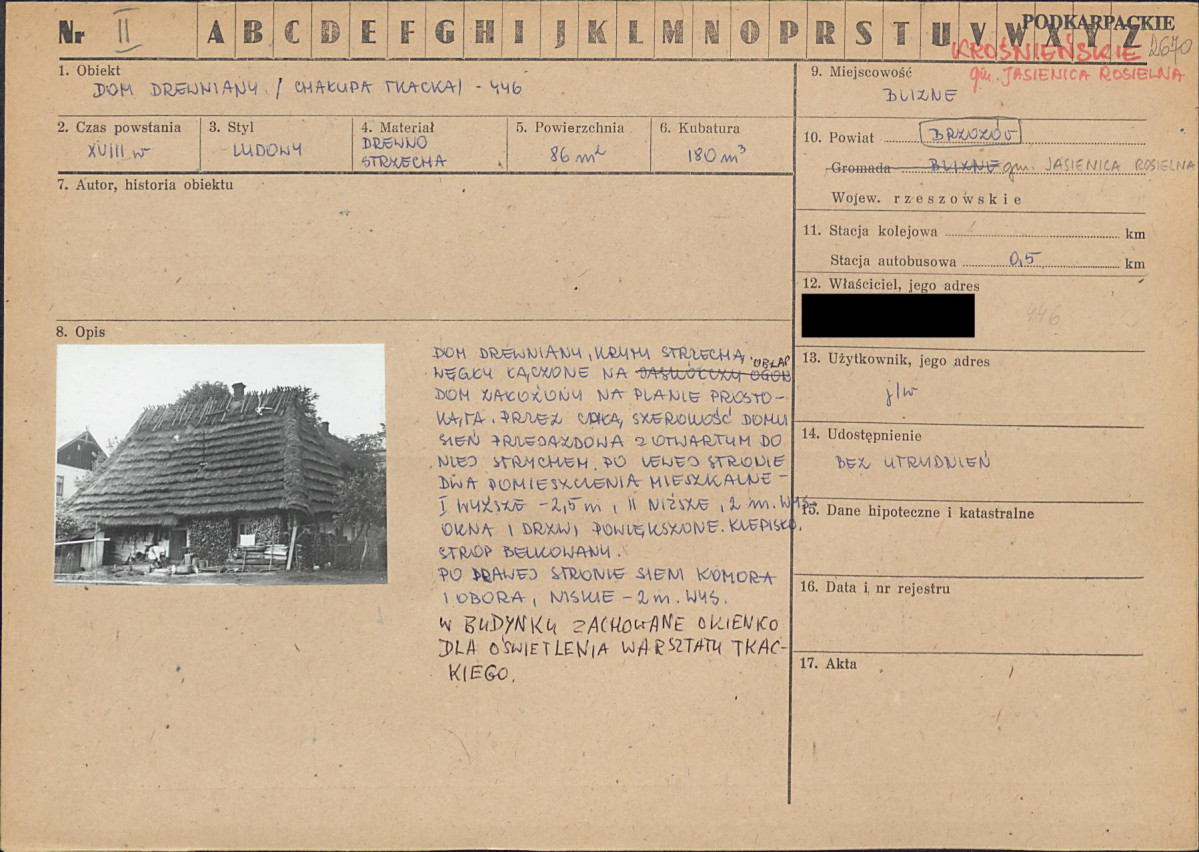 Nr II A B C D E F G H I J K L M N O P R S T U V W X Y Z
PODKARPACKIE
KROŚNIEŃSKIE 2670
gm. JASIENICA ROSIELNA
1. Obiekt
DOM DREWNIANY / CHAŁUPA TKACKA/ - 446
2. Czas powstania
XVIII w
3. Styl
LUDOWY
4. Materiał
DREWNO
STRZECHA
5. Powierzchnia
86 m²
6. Kubatura
180 m³
7. Autor, historia obiektu
8. Opis
DOM DREWNIANY, KRYTY STRZECHĄ
OBŁAP
WĘGŁY ŁĄCZONE NA JASKÓŁCZY OGON
DOM ZAŁOŻONY NA PLANIE PROSTO-
KĄTA. PRZEZ CAŁĄ SZEROKOŚĆ DOMU
SIEŃ PRZEJAZDOWA Z OTWARTYM DO
NIEJ STRYCHEM. PO LEWEJ STRONIE
DWA POMIESZCZENIA MIESZKALNE -
I WYŻSZE - 2,5 m, II NIŻSZE, 2 m. WYS.
OKNA I DRZWI POWIĘKSZONE. KLEPISKO.
STROP BELKOWANY.
PO PRAWEJ STRONIE SIENI KOMORA
I OBORA, NISKIE - 2 m. WYS.
W BUDYNKU ZACHOWANE OKIENKO
DLA OŚWIETLENIA WARSZTATU TKAC-
KIEGO.
9. Miejscowość
BLIZNE
10. Powiat BRZOZÓW
Gromada BLIZNE gm. JASIENICA ROSIELNA
Wojew. rzeszowskie
11. Stacja kolejowa km
Stacja autobusowa 0,5 km
12. Właściciel, jego adres
446
13. Użytkownik, jego adres
j/w
14. Udostępnienie
BEZ UTRUDNIEŃ
15. Dane hipoteczne i katastralne
16. Data i nr rejestru
17. Akta